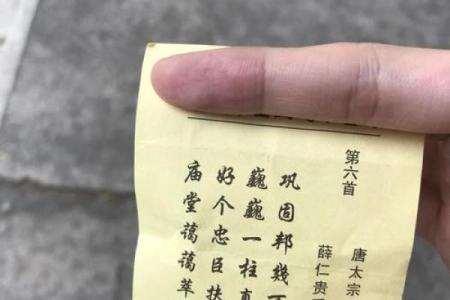 第六首
唐太宗
薛仁贵
巩固邦幾
巍巍一柱
好个忠臣扶
庙堂蔼蔼萃